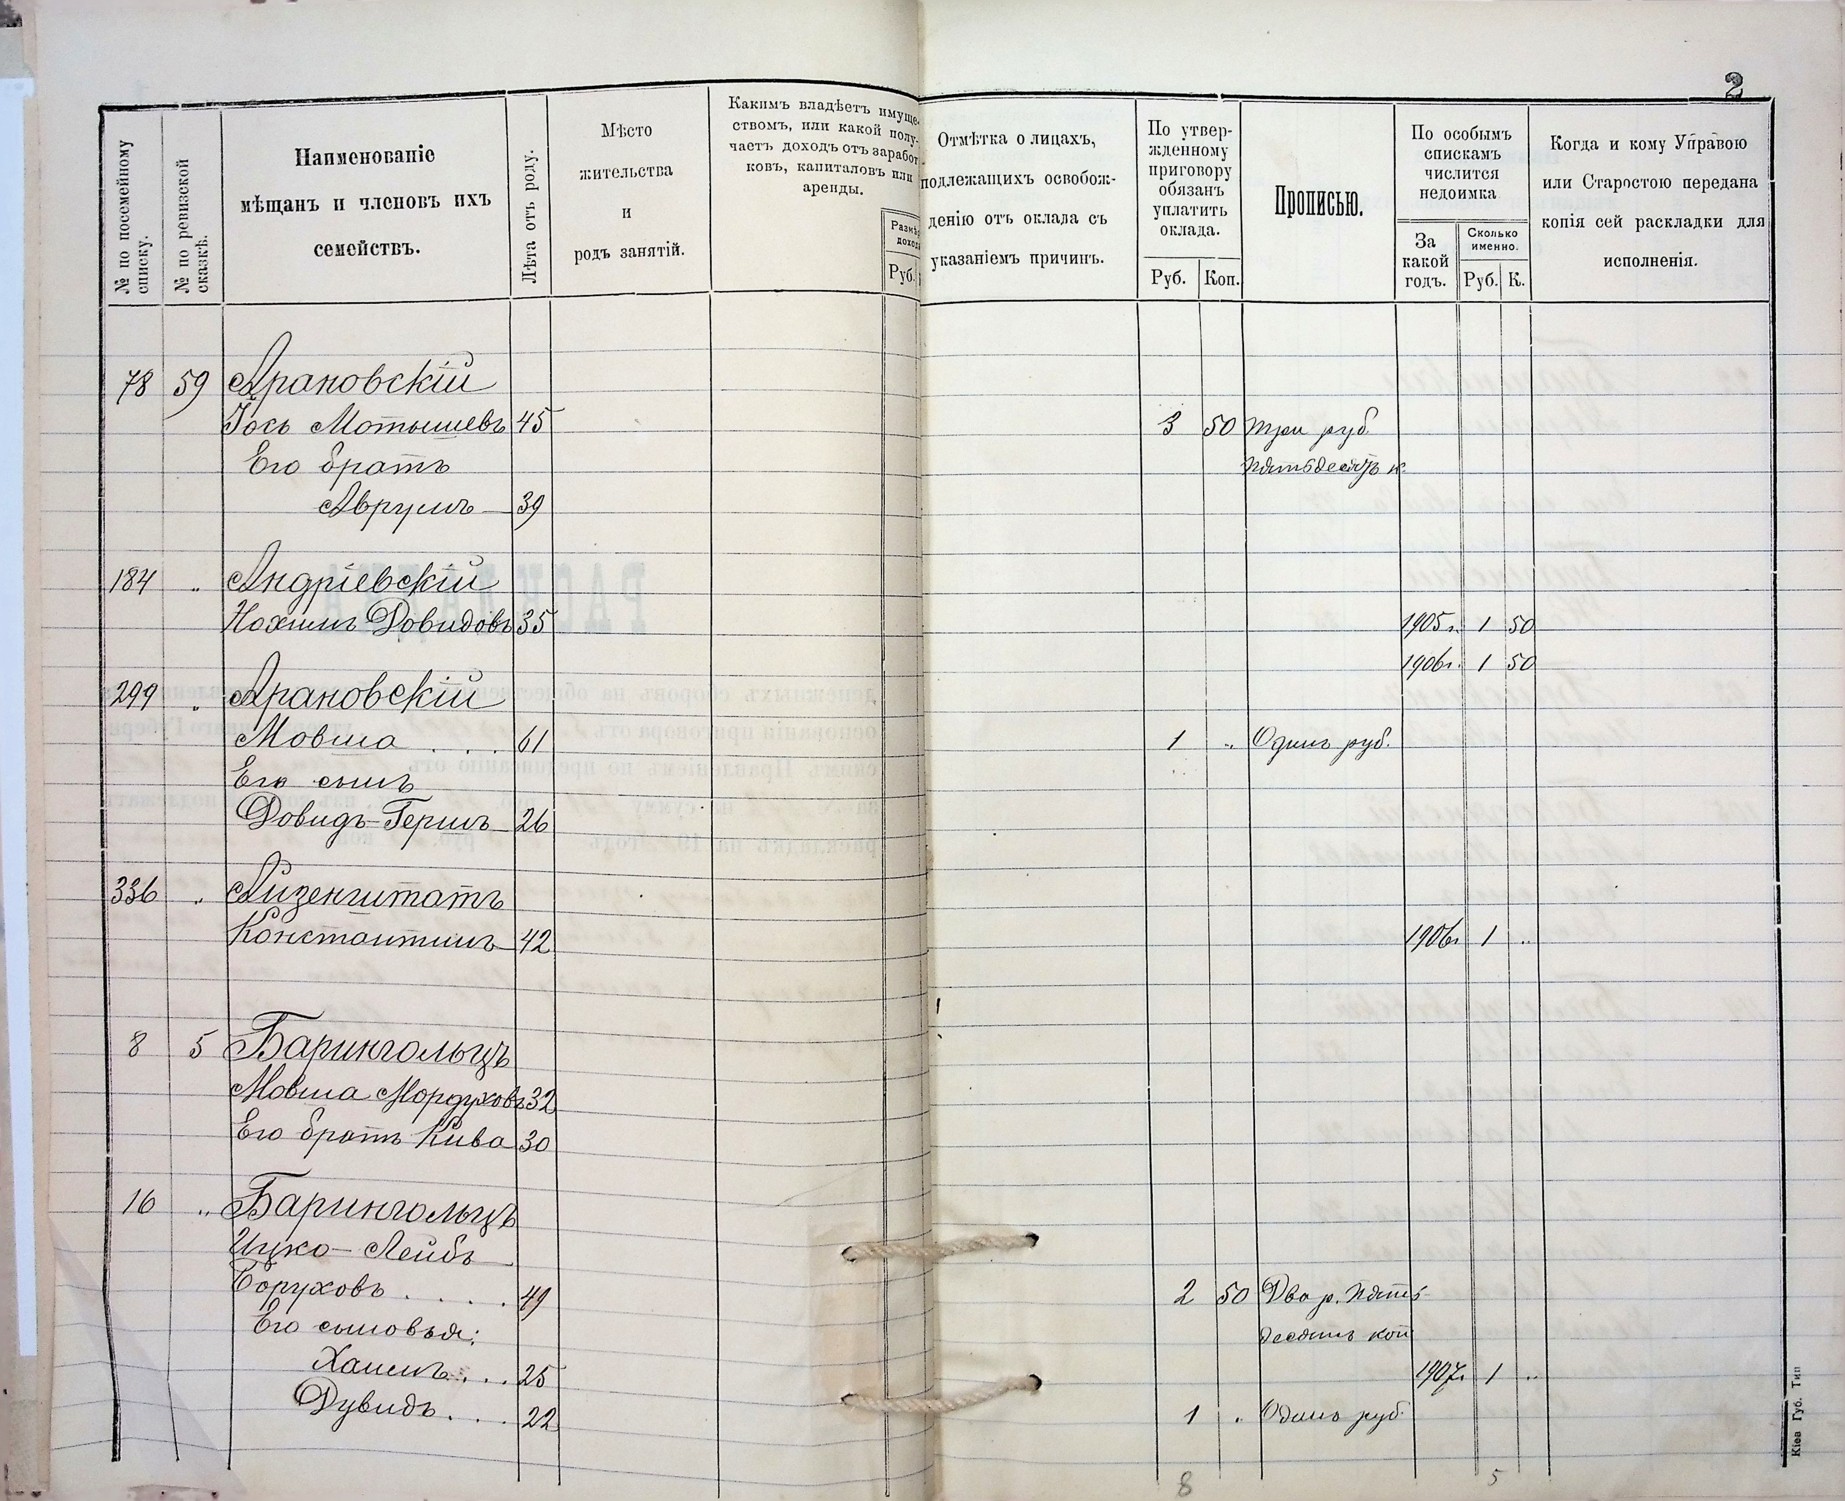 2
№ по посемейному списку.
№ по ревизской сказкѣ.
Наименованіе
мѣщанъ и членовъ ихъ
семействъ.
Лѣта отъ роду.
Мѣсто
жительства
и
родъ занятій.
Какимъ владѣетъ имуще-
ствомъ, или какой полу-
чаетъ доходъ отъ заработ-
ковъ, капиталовъ или
аренды.
Руб.
Отмѣтка о лицахъ,
подлежащихъ освобож-
денію отъ оклада съ
указаніемъ причинъ.
По утвер-
жденному
приговору
обязанъ
уплатить
оклада.
Руб. Коп.
Прописью.
По особымъ
спискамъ
числится
недоимка
За
какой
годъ.
Сколько
именно.
Руб. К.
Когда и кому Управою
или Старостою передана
копія сей раскладки для
исполненія.
78 59 Арановскій
Іось Мотышевъ 45 3 50 Три руб.
Его братъ пятьдесятъ к.
Аврумъ 39
184 " Андріевскій
Нохимъ Довидовъ 35 1905 г. 1 50
1906 г. 1 50
299 " Арановскій
Мовша . . . 61 1 " Одинъ руб.
Его сынъ
Довидъ-Гершъ 26
336 " Айзенштатъ
Константинъ 42 1906 г 1 "
8 5 Барингольцъ
Мовша Мордуховъ 32
Его братъ Кива 30
16 " Барингольцъ
Ицко-Лейбъ
Боруховъ . . . . 49 2 50 Два р. пять-
Его сыновья: десятъ коп
Хаимъ . . . 25 1907 г 1 "
Дувидъ . . . 22 1 " Одинъ руб.
8 5
Кіев Губ. Тип